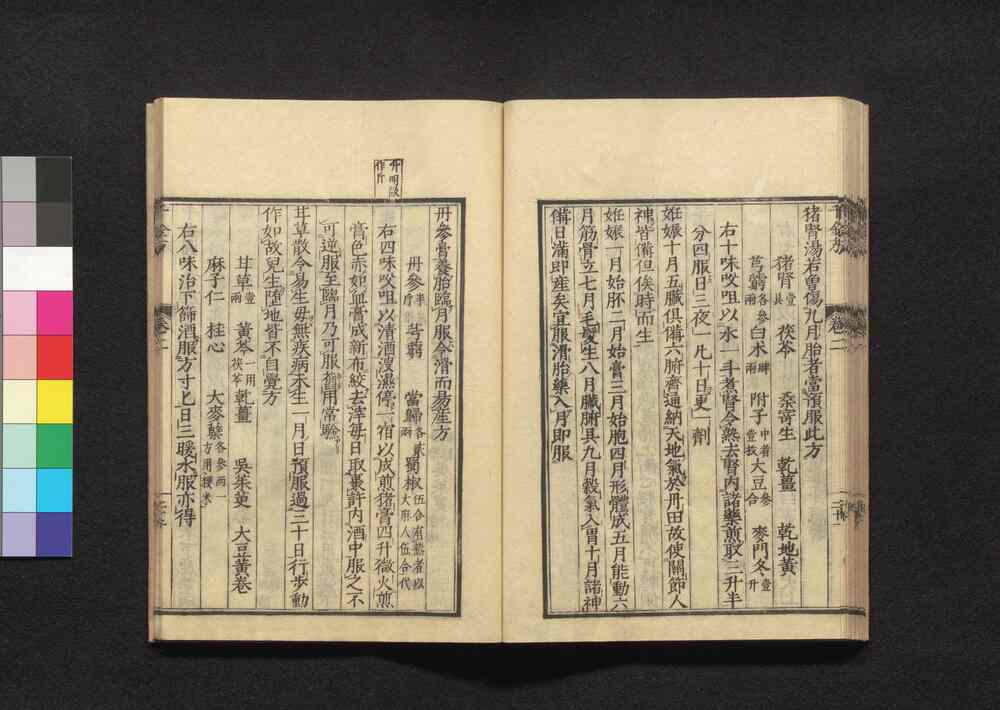 猪腎湯若曾傷九月胎者當預服此方
猪腎壹具 茯苓 桑寄生 乾薑 乾地黃
芎藭各參兩 白术肆兩 附子中者壹枚 大豆參合 麥門冬壹升
右十味㕮咀以水一斗煮腎令熟去腎內諸藥煎取三升半
分四服日三夜一凡十日更一劑
姙娠十月五臟俱備六腑齊通納天地氣於丹田故使關節人
神皆備但俟時而生
姙娠一月始胚二月始膏三月始胞四月形體成五月能動六
月筋骨立七月毛髮生八月臟腑具九月穀氣入胃十月諸神
備日滿即產矣宜服滑胎藥入月即服
卷二
丹參膏養胎臨月服令滑而易產方
丹參半斤 芎藭 當歸各貳兩 蜀椒伍合有熱者以大麻人伍合代
右四味㕮咀以清酒溲濕停一宿以成煎猪膏四升微火煎
膏色赤如血膏成新布絞去滓每日取棗許內酒中服之不
可逆服至臨月乃可服舊用常驗
甘草散令易生母無疾病未生一月日預服過三十日行步動
作如故兒生墮地皆不自覺方
甘草壹兩 黃芩一用茯苓 乾薑 吳茱萸 大豆黃卷
麻子仁 桂心 大麥蘗各參兩一方用粳米
右八味治下篩酒服方寸匕日三暖水服亦得